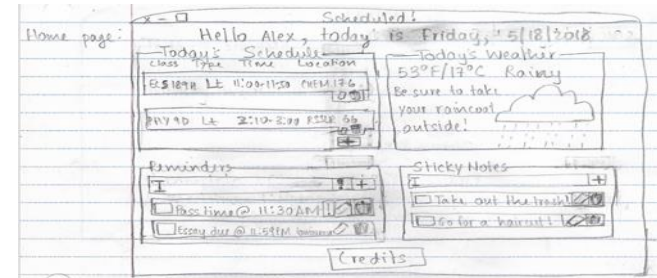 Home page:
x - □ Scheduled!
Hello Alex, today is Friday, 5/18/2018
Today's Schedule
Class Type Time Location
Lt 11:00-11:50 CHEM 176
PHY 9D Lt 2:10-3:00 66
+
Today's Weather
53°F/17°C Rainy
Be sure to take
your raincoat
outside!
Reminders
I ! +
Pass time @ 11:30AM !
Essay due @ 11:59PM
Sticky Notes
I +
Take out the trash!
Go for a haircut!
Credits